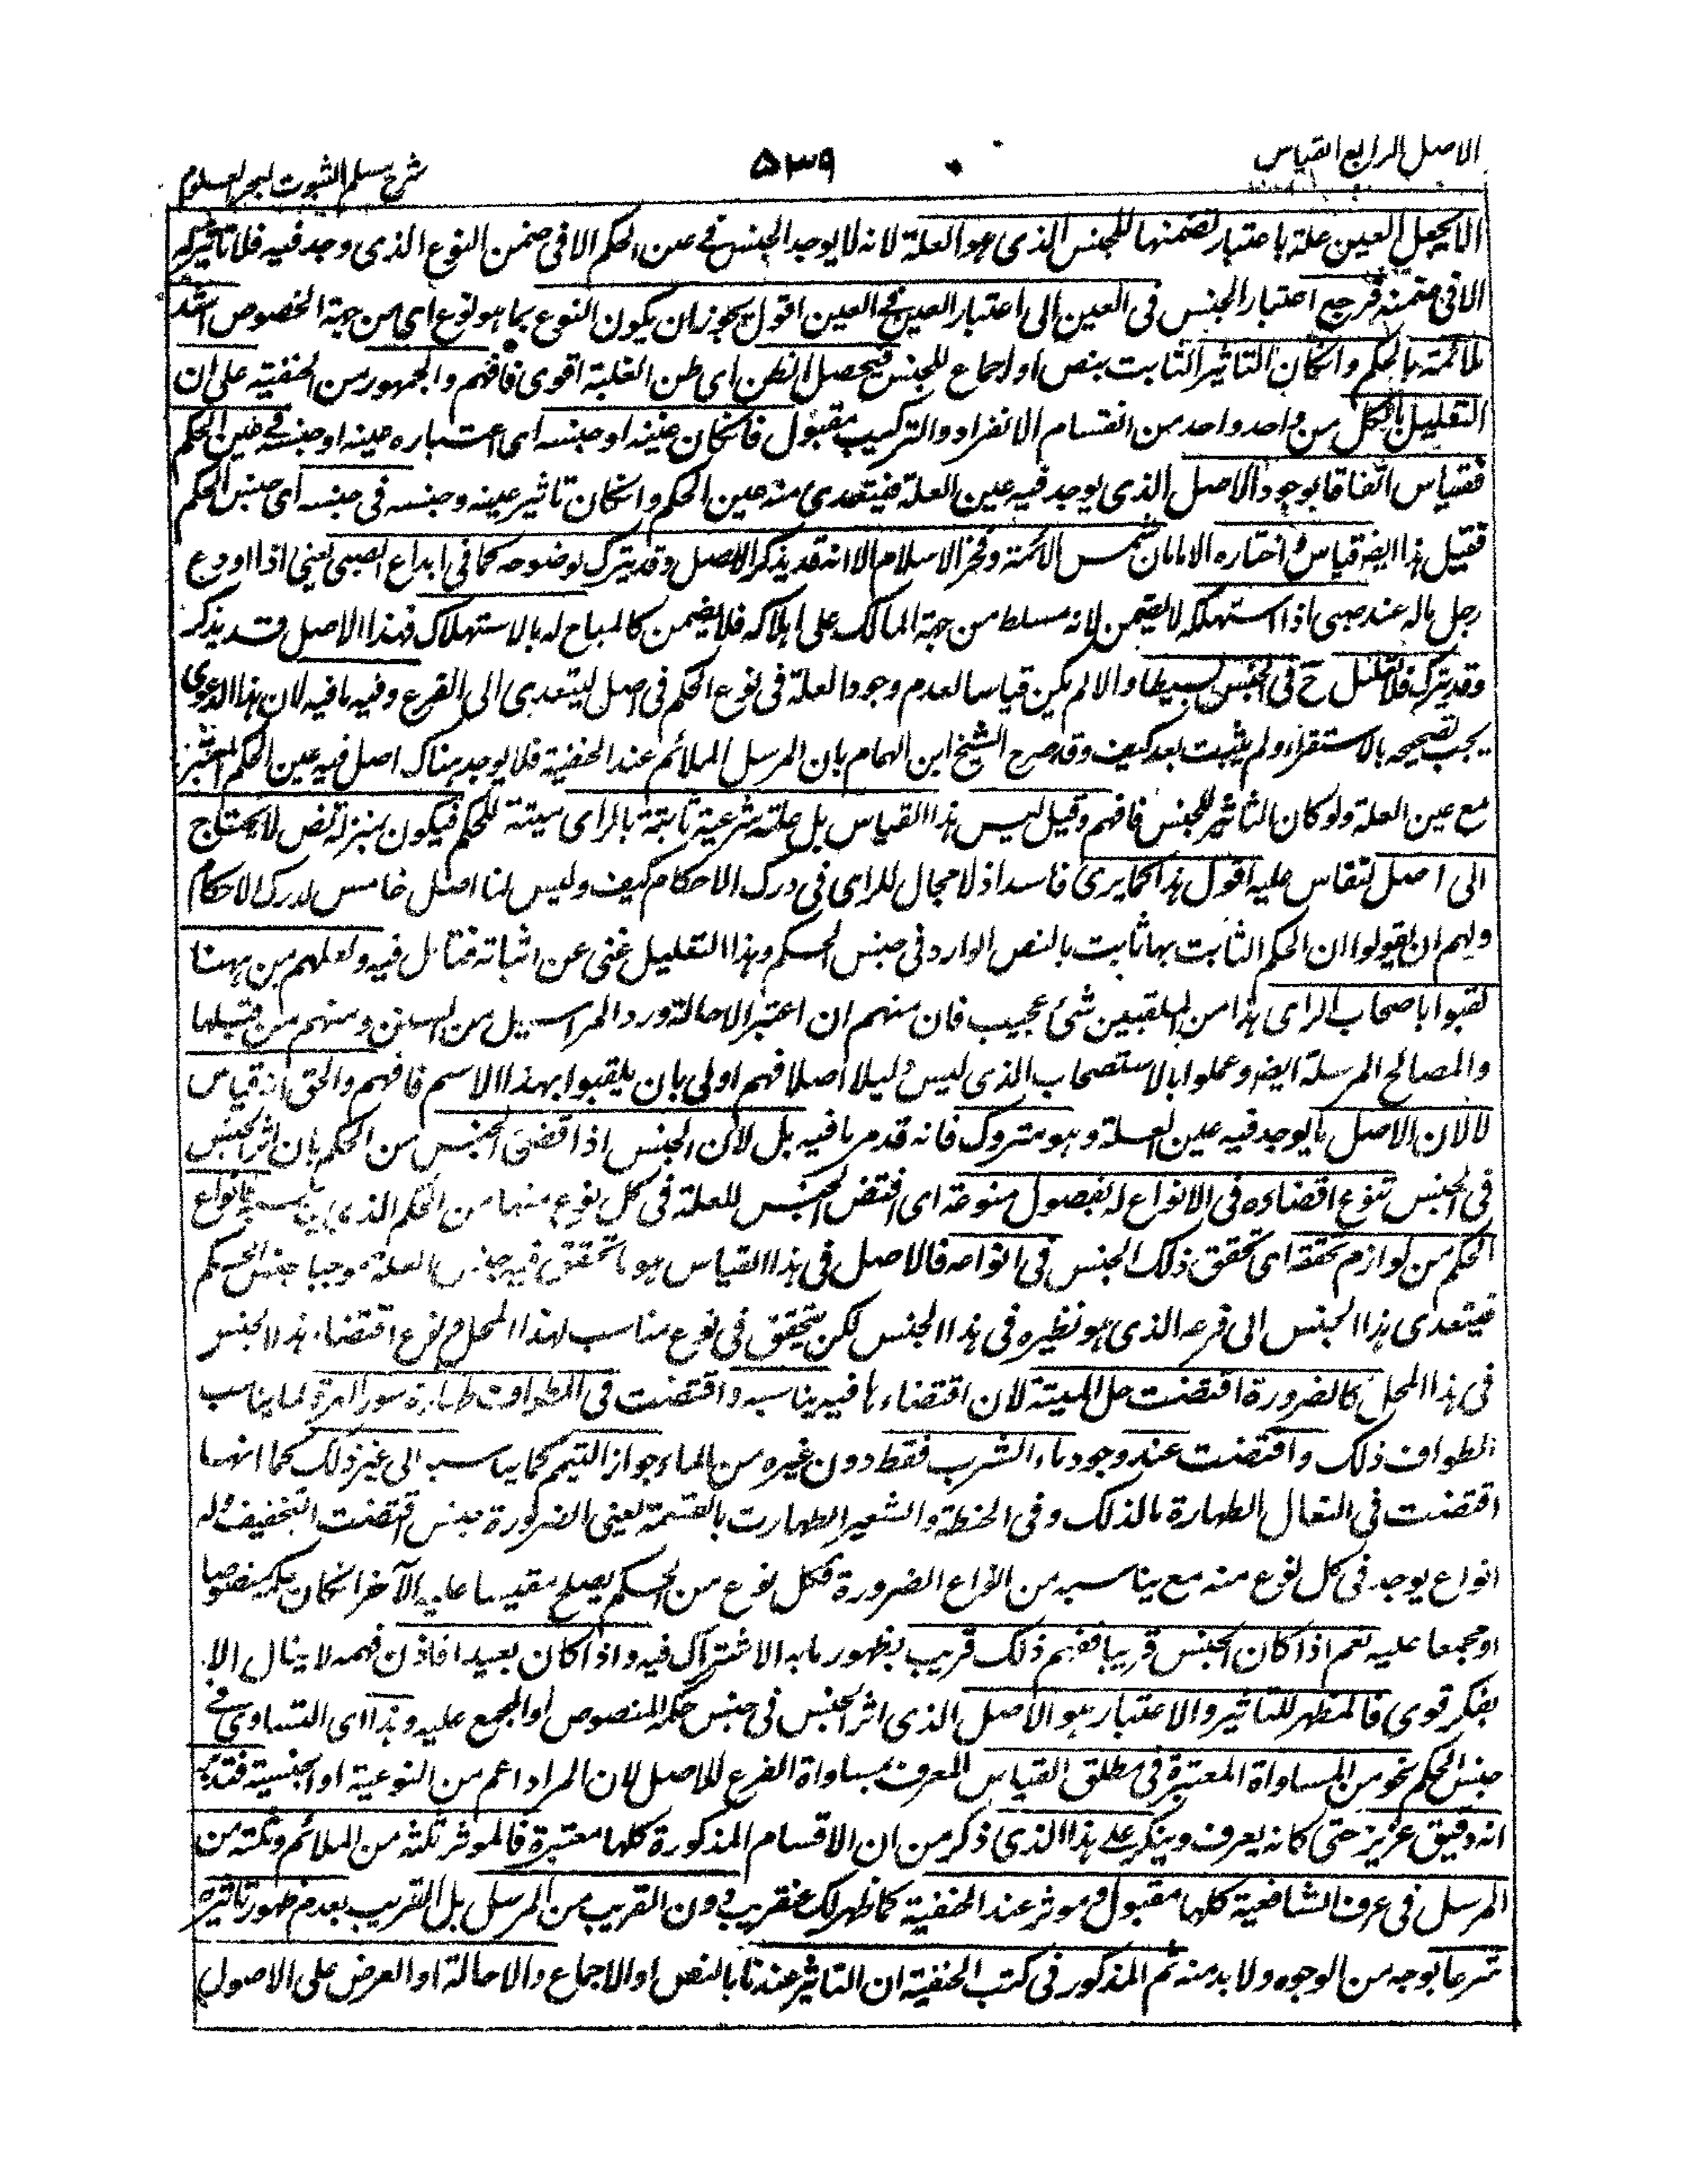 الاصل الرابع القياس
۵۳۹
شرح مسلم الثبوت لبحر العلوم
الا بجعل العين علة باعتبار تضمنها للجنس الذى هو العلة لانه لا يوجد الجنس فى عين الحكم الا فى ضمن النوع الذى وجد فيه فلا تاثير له
الا فى ضمنه فرجع اعتبار الجنس فى العين الى اعتبار العين فى العين اقول يجوز ان يكون النوع بما هو نوع اى من جهة الخصوص اشد
ملائمة بالحكم وانكان التاثير الثابت بنص او اجماع للجنس فيحصل الظن اى ظن العلية اقوى فافهم والجمهور من الحنفية على ان
التعليل بالكل من واحد واحد من اقسام الانفراد والتركيب مقبول فانكان عينه او جنسه اى اعتباره عينه او جنسه فى عين الحكم
فقياس اتفاقا بوجود الاصل الذى يوجد فيه عين العلة فيتعدى منه عين الحكم وانكان تاثير عينه وجنسه فى جنسه اى جنس الحكم
فقيل هذا ايضا قياس واختاره الامامان شمس الائمة وفخر الاسلام الا انه قد يذكر الاصل وقد يترك لوضوحه كما فى ايداع الصبى يعنى اذا اودع
رجل ماله عند صبى اذا استهلكه لا يضمن لانه مسلط من جهة المالك على اهلاكه فلا يضمن كالمباح له بالاستهلاك فهذا الاصل قد يذكر
وقد يترك فلا تعليل ح فى الجنس بسيطا والا لم يكن قياسا لعدم وجود العلة فى نوع الحكم فى اصل ليتعدى الى الفرع وفيه ما فيه لان هذا الدعوى
يجب تصحيحه بالاستقراء ولم يثبت بعد كيف وقد صرح الشيخ ابن الهمام بان المرسل الملائم عند الحنفية فلا يوجد هناك اصل فيه عين الحكم المعتبر
مع عين العلة ولو كان التاثير للجنس فافهم وقيل ليس هذا القياس بل علة شرعية ثابتة بالراى مبينة للحكم فيكون بمنزلة نص لا يحتاج
الى اصل تقاس عليه اقول هذا كما يرى فاسد اذ لا مجال للراى فى درك الاحكام كيف وليس لنا اصل خامس لدرك الاحكام
ولهم ان يقولوا ان الحكم الثابت بها ثابت بالنص الوارد فى جنس الحكم وهذا التعليل غنى عن اثباته فتامل فيه ولعلهم من ههنا
لقبوا باصحاب الراى هذا من الملقبين شئ عجيب فان منهم ان اعتبر الاحالة ورد المراسيل من السنن ومنهم من قبلها
والمصالح المرسلة ايضا وعملوا بالاستصحاب الذى ليس دليلا اصلا فهم اولى بان يلقبوا بهذا الاسم فافهم والحق انه قياس
لا لان الاصل ما يوجد فيه عين العلة وهو متروك فانه قد مر ما فيه بل لان الجنس اذا اقتضى الجنس من الحكم بان اثر الجنس
فى الجنس تنوع اقتضاءه فى الانواع له بفصول منوعة اى اقتضى الجنس للعلة فى كل نوع منها من الحكم الذى يناسبه فانواع
الحكم من لوازم تحققه اى تحقق ذلك الجنس فى انواعه فالاصل فى هذا القياس هو ما تحقق فيه جنس العلة موجبا جنس الحكم
فيتعدى هذا الجنس الى فرعه الذى هو نظيره فى هذا الجنس لكن يتحقق فى نوع مناسب لهذا المحل ونوع اقتضاء هذا الجنس
فى هذا المحل كالضرورة اقتضت حل الميتة لان اقتضاءها فيه يناسبه واقتضت فى الطواف طهارة سور الهرة لما يناسب
الطواف ذلك واقتضت عند وجود ماء الشرب فقط دون غيره من الماء جواز التيمم كما يناسب الى غير ذلك كما انها
اقتضت فى النعال الطهارة بالدلك وفى الحنطة والشعير الطهارت بالقسمة يعنى الضرورة جنس اقتضت التخفيف وله
انواع يوجد فى كل نوع منه مع يناسبه من انواع الضرورة فكل نوع من الحكم يصلح مقيسا عليه الآخر انكان حكمه منصوصا
او مجمعا عليه نعم اذا كان الجنس قريبا ففهم ذلك قريب بظهور ما به الاشتراك فيه واذا كان بعيدا فاذن فهمه لا ينال الا
بفكر قوى فالمظهر للتاثير والاعتبار هو الاصل الذى اثر الجنس فى جنس حكمه المنصوص او المجمع عليه وهذا اى التساوى فى
جنس الحكم نحو من المساواة المعتبرة فى مطلق القياس المعرف بمساواة الفرع للاصل لان المراد اعم من النوعية او الجنسية فتدبر
انه دقيق عزيز حتى كانه يعرف وينكر على هذا الذى ذكر من ان الاقسام المذكورة كلها معتبرة فالموثر ثلثة من الملائم وثلثة من
المرسل فى عرف الشافعية كلها مقبول وموثر عند الحنفية كما ظهر لك عنقريب دون القريب من المرسل بل الغريب بعدم ظهور تاثيره
شرعا بوجه من الوجوه ولا بد منه ثم المذكور فى كتب الحنفية ان التاثير عندنا بالنص او الاجماع والاحالة او العرض على الاصول